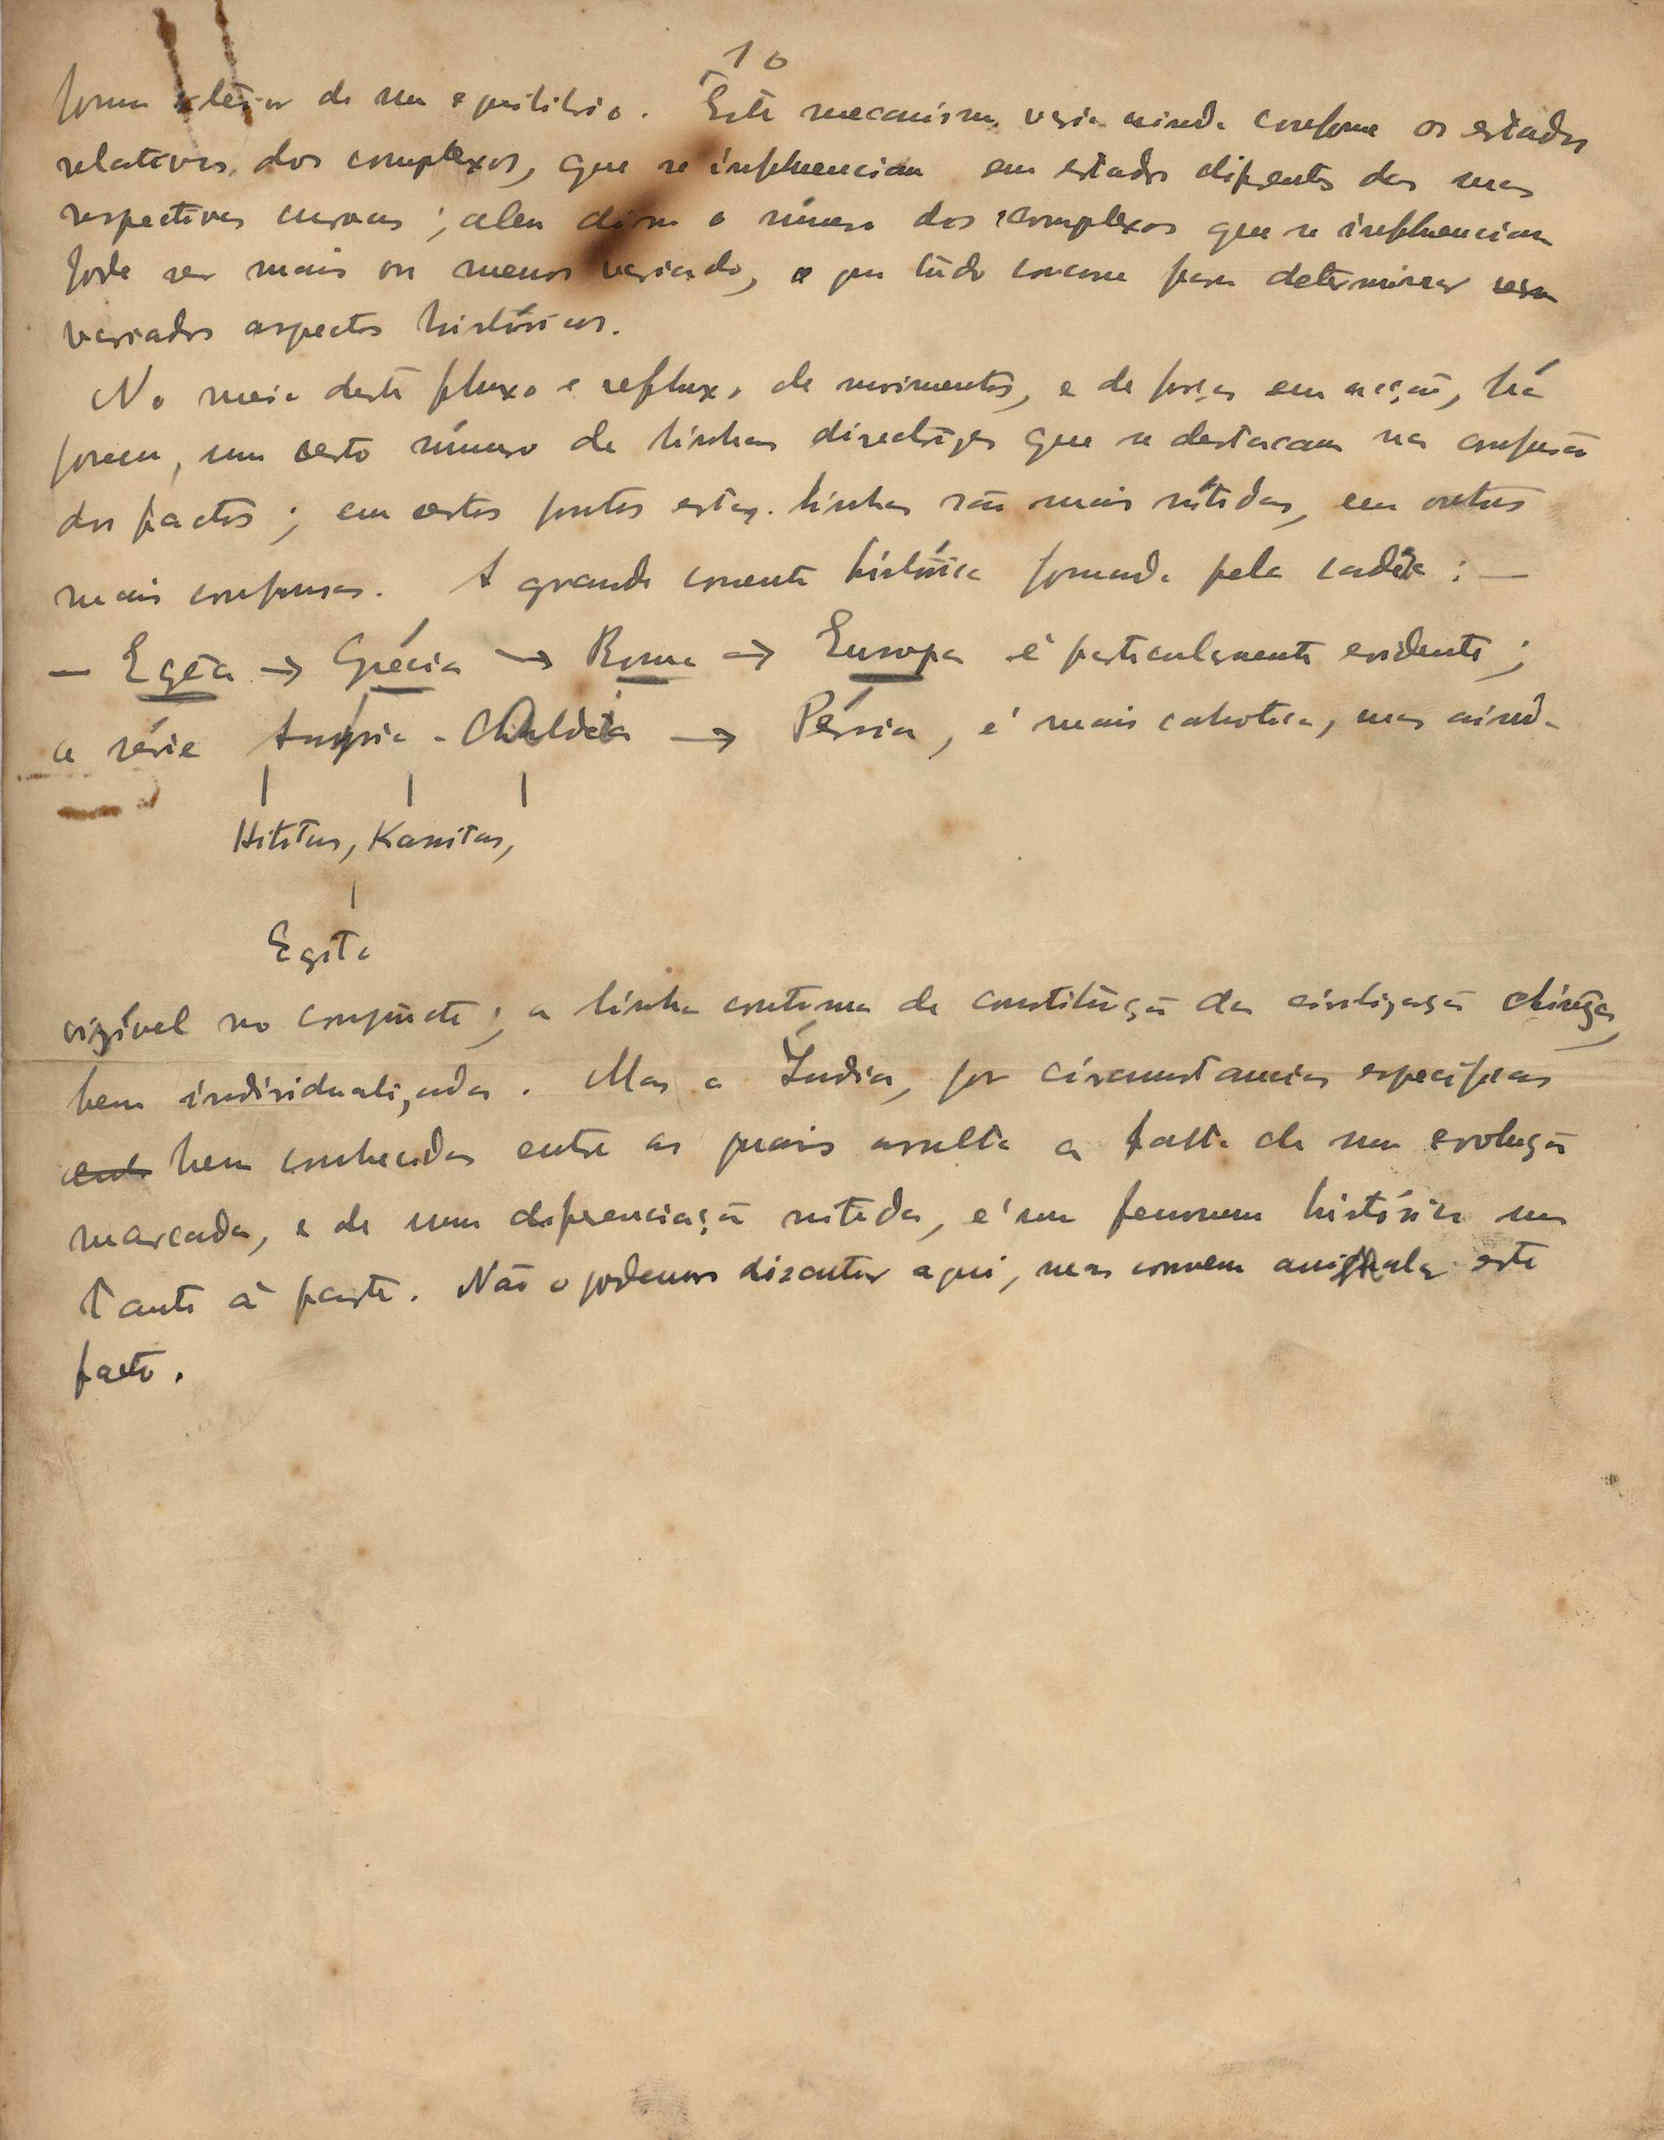 10
forma exterior de um equilibrio. Este mecanismo varia ainda conforme os estados
relativos dos complexos, que se influenciam em estados diferentes das suas
respectivas curvas; alem disso o número dos complexos que se influenciam
pode ser mais ou menos variado, o que tudo concorre para determinar
variados aspectos históricos.
No meio deste fluxo e refluxo de movimentos, e de forças em acção, há
porem, um certo número de linhas directrizes que se destacam na confusão
dos factos; em certos pontos estas linhas são mais nitidas, em outros
mais confusas. A grande corrente histórica formada pela cadeia: —
— Egéa → Grécia → Roma → Europa é particularmente evidente;
a série Assyria - Chaldeia → Pérsia, é mais cahotica, mas ainda
Hititas, Kassitas,
Egito
vizível no conjuncto; a linha continua de constituição da civilização chineza,
bem individualizada. Mas a Índia, por circumstancias especificas
bem conhecidas entre as quais avulta a falta de uma evolução
marcada, e de uma diferenciação nitida, é um fenomeno histórico um
tanto á parte. Não o podemos discutir aqui, mas convem assignalar este
facto.